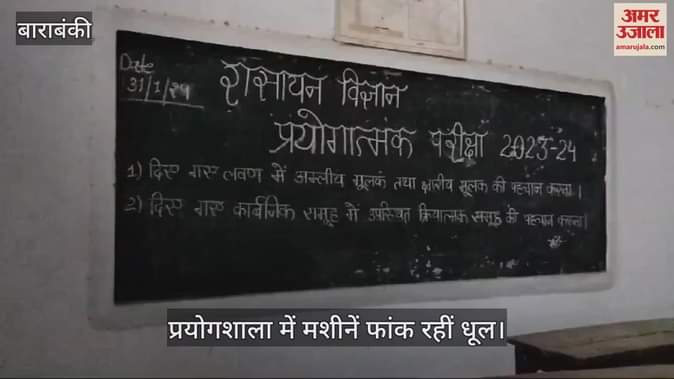 बाराबंकी
अमर उजाला
amarujala.com
Date
31/1/24
रासायन विज्ञान
प्रयोगात्मक परीक्षा 2023-24
1) दिए गए लवण में अम्लीय मूलक तथा क्षारीय मूलक की पहचान करना।
2) दिए गए कार्बनिक समूह में उपस्थित क्रियात्मक समूह की पहचान करना।
प्रयोगशाला में मशीनें फांक रहीं धूल।